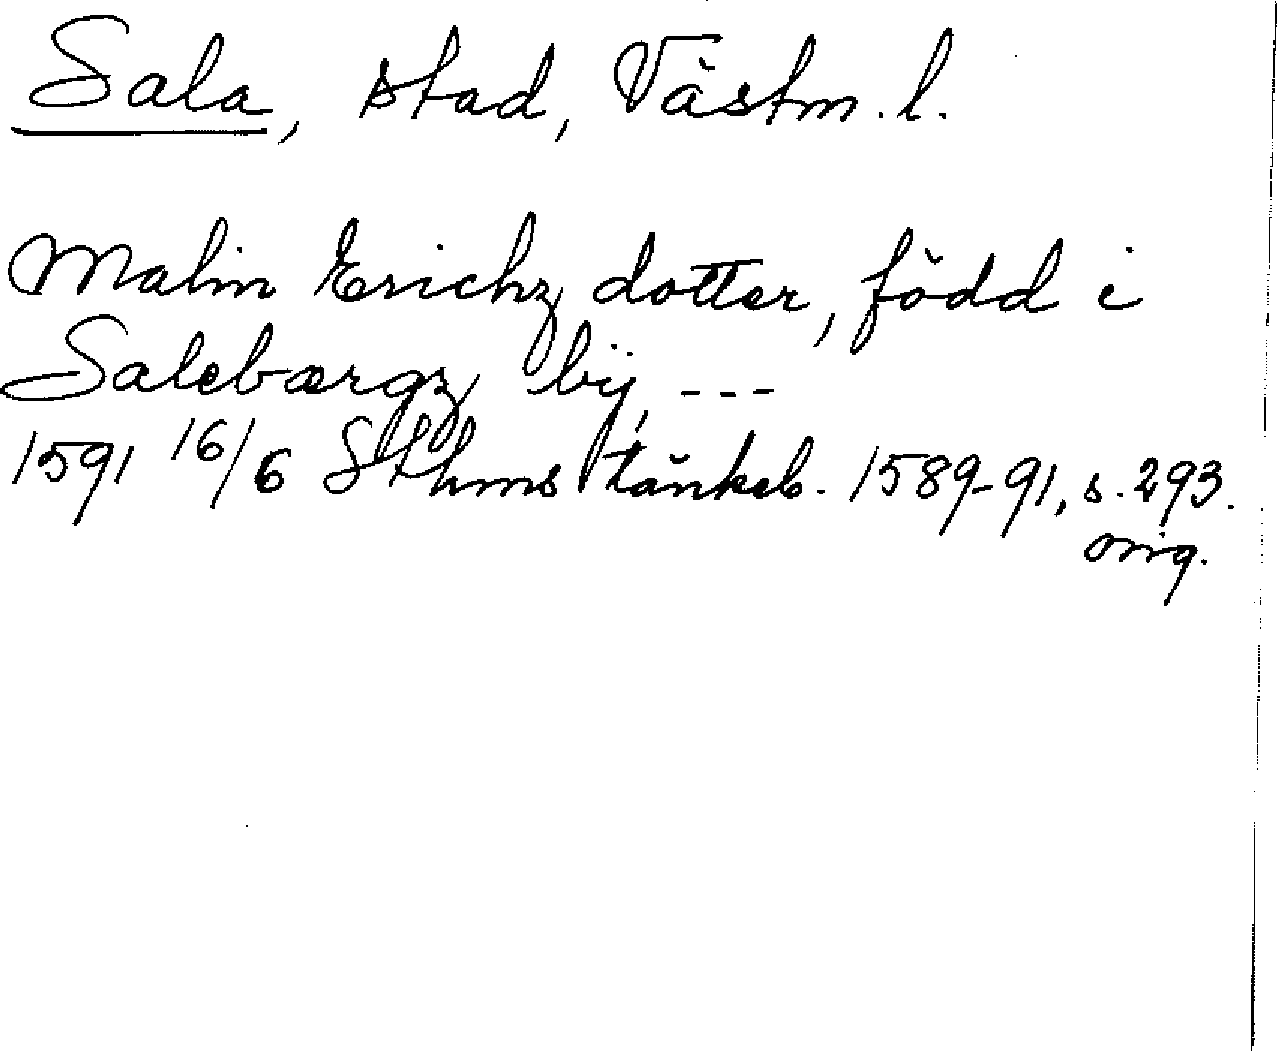 Sala, stad, Västm. l.
Malin Erichz dotter, född i
Salebærgz bij, ---
1591 16/6 Sthms tänkeb. 1589-91, s. 293.
orig.